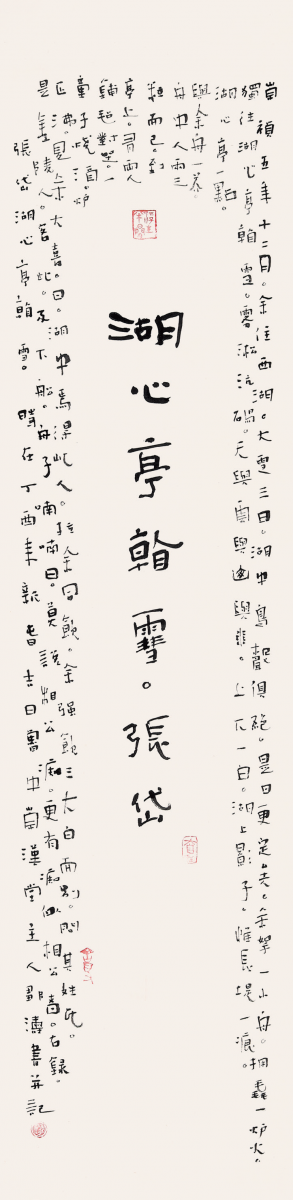 崇禎五年十二月。余住西湖。大雪三日。湖中鳥聲俱絕。是日更定矣。余拏一小舟。擁毳一炉火。
獨往湖心亭看雪。霧淞沆碭。天與雲與山與水。上下一白。湖上影子。惟長堤一痕。
湖心亭一點。
與余舟一芥。
舟中人兩三
粒而已。到
亭上。有兩人
鋪氈對坐。一
童子燒酒。炉
正沸。見余大喜。曰。湖中焉得此人。拉余同飲。余強飲三大白而別。問其姓氏。
是金陵人。客此。及下船。舟子喃喃曰。莫說相公痴。更有痴似相公者。右錄。
張岱湖心亭看雪。時在丁酉年新春吉日蜀中崇漢堂主人鄒濤書并記
湖心亭看雪。張岱